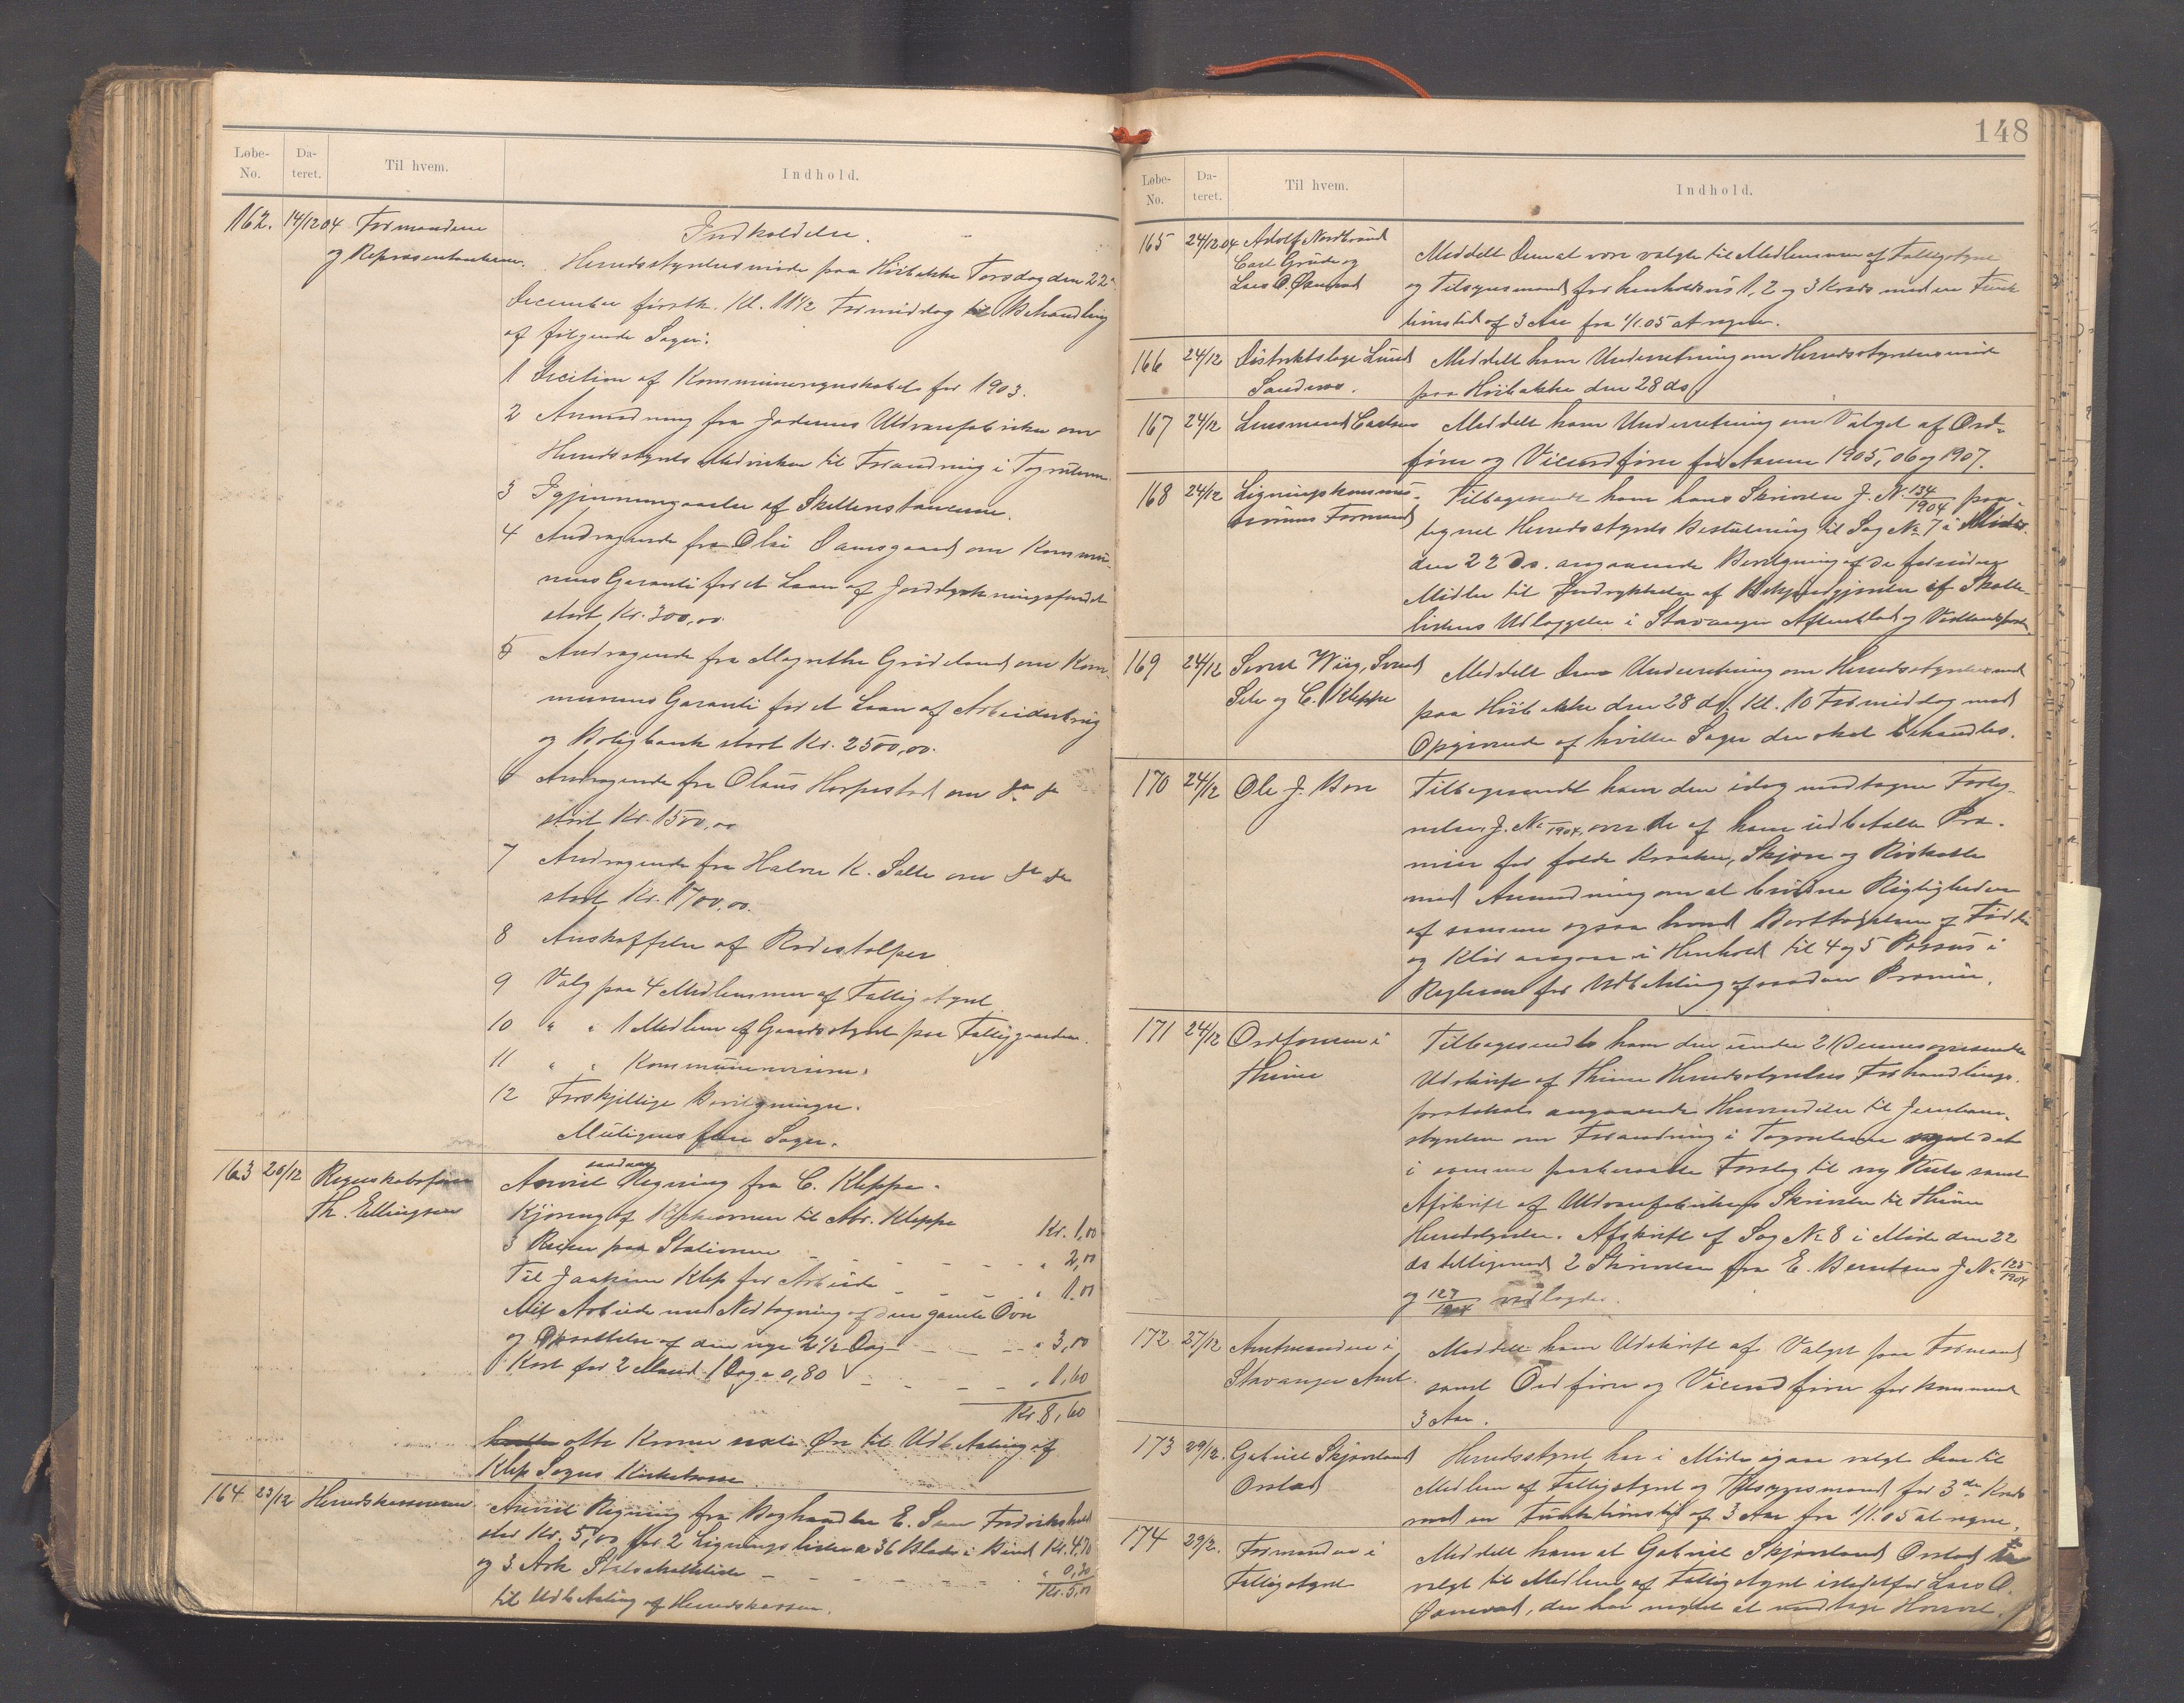 Løbe-No. Da-teret. Til hvem. Indhold.
162. 14/12 04 Formændene og Repræsentanterne. Indkaldelse.
Herredsstyrelsesmøde paa Höibakke Torsdag den 22de
December førstk. Kl. 11 1/2 Formiddag til Behandling
af følgende Sager:
1 Decision af Kommuneregnskabet for 1903.
2 Anmodning fra Jæderens Uldvarefabrikker om
Herredsstyrets Medvirken til Forandring i Togruterne.
3 Igjennemgaaelse af Skatterestancerne.
4 Andragende fra Olai Damsgaard om Kommu-
nens Garanti for et Laan af Jorddyrkningsfondet
stort Kr. 300,00.
5 Andragende fra Magrethe Grødeland om Kom-
munens Garanti for et Laan af Arbeiderbrug
og Boligbank stort Kr. 2500,00.
6 Andragende fra Olaus Horpestad om do do
stort Kr. 1500,00
7 Andragende fra Halvor K. Salte om do do
stort Kr. 1700,00.
8 Anskaffelse af Rodestolper
9 Valg paa 4 Medlemmer af Fattigstyret
10 " " 1 Medlem af Gaardsstyret paa Fattiggaarden.
11 " " Kommunerevisor.
12 Forskjellige Bevilgninger.
Muligens flere Sager.
163 20/12 Regnskabsfører Th. Ellingsen
Anvist saadan Regning fra C. Kleppe.
Kjøring af til Abr. Kleppe Kr. 1,00
3 Reiser paa Stationen " 2,00
Til Joakim Klep for Arbeide " 1.00
Mit Arbeide med Nedtagning af den gamle Ovn
og Opsættelse af den nye 2 1/2 Dag " 3,00
Kost for 2 Mand 1 Dag a 0,80 " 1,60
Kr. 8,60
otte Kroner seksti Øre til Udbetaling af
Klep Sogns Kirkekasse
164 23/12 Herredskassereren
Anvist Regning fra Boghandler E. Sem Fredrikshald
stor Kr. 5,00 for 2 Ligningslister a 36 Blade i Bind Kr. 4,70
og 3 Ark Statsskatteliste " 0,30
Kr. 5,00
til Udbetaling af Herredskassen.
148
Løbe-No. Da-teret. Til hvem. Indhold.
165 24/12 04 Adolf Nordbraud Carl Grude og Lars O. Øxnevad
Meddelt Dem at være valgte til Medlemmer af Fattigstyret
og Tilsynsmænd for henholdsvis 1, 2 og 3 Kreds med en Funk
tionstid af 3 Aar fra 1/1.05 at regne.
166 24/12 Distriktslæge Lund Sandnes.
Meddelt ham Underretning om Herredsstyrelsesmøde
paa Höibakke den 28 ds.
167 24/12 Lensmand Carlsen
Meddelt ham Underretning om Valget af Ord-
fører og Viceordfører for Aarene 1905, 06 og 1907.
168 24/12 Ligningskommis-sionens Formand
Tilbagesendt ham hans Skrivelse J. No 134/1904 paa-
tegnet Herredsstyrets Beslutning til Sag No 7 i Møde
den 22 ds. angaaende Bevilgning af de fornødne
Midler til Indrykkelse af Bekjendtgjørelse af Skatte-
listens Udlæggelse i Stavanger Aftenblad og Vestlandsposten.
169 24/12 Svend Wiig, Svend Sele og C. Kleppe
Meddelt Dem Underretning om Herredsstyrelsesmøde
paa Höibakke den 28 ds. Kl. 10 Formiddag med
Opgivende af hvilke Sager der skal behandles.
170 24/12 Ole J. Bore
Tilbagesendt ham den idag modtagne Forteg-
nelse, J. No /1904, over de af ham udbetalte Præ-
mier for fældte Kraaker, Skjære og Røiskatte
med Anmodning om at bevidne Rigtigheden
af samme ogsaa hvad Borttagelsen af Fødder
og Klør angaar i Henhold til 4 og 5 Passus i
Reglerne for Udbetaling af saadan Præmie.
171 24/12 Ordføreren i Thime
Tilbagesendt ham den under 21 Dennes oversendte
Udskrift af Thime Herredsstyrelses Forhandlings-
protokol angaaende Henvendelse til Jernbane-
styrelsen om Forandring i Togruterne det
i samme paaberaabte Forslag til ny Rute samt
Afskrift af Uldvarefabrikkers Skrivelse til Thime
Herredsstyrelse. Afskrift af Sag No 8 i Møde den 22
ds tilligemed 2 Skrivelser fra E. Berntsen J No 125/1904
og 127/1904 vedlagdes.
172 27/12 Amtmanden i Stavanger Amt.
Meddelt ham Udskrift af Valget paa Formænd
samt Ordfører og Viceordfører for kommende
3 Aar.
173 29/12. Gabriel Skjæveland Orstad
Herredsstyret har i Møde igaar valgt Dem til
Medlem af Fattigstyret og Tilsynsmand for 3die Kreds
med en Funktionstid af 3 Aar fra 1/1.05 at regne.
174 29/12. Formanden i Fattigstyret
Meddelt ham at Gabriel Skjæveland Orstad er
valgt til Medlem af Fattigstyret istedetfor Lars O.
Øxnevad, der har nægtet at modtage Hvervet.